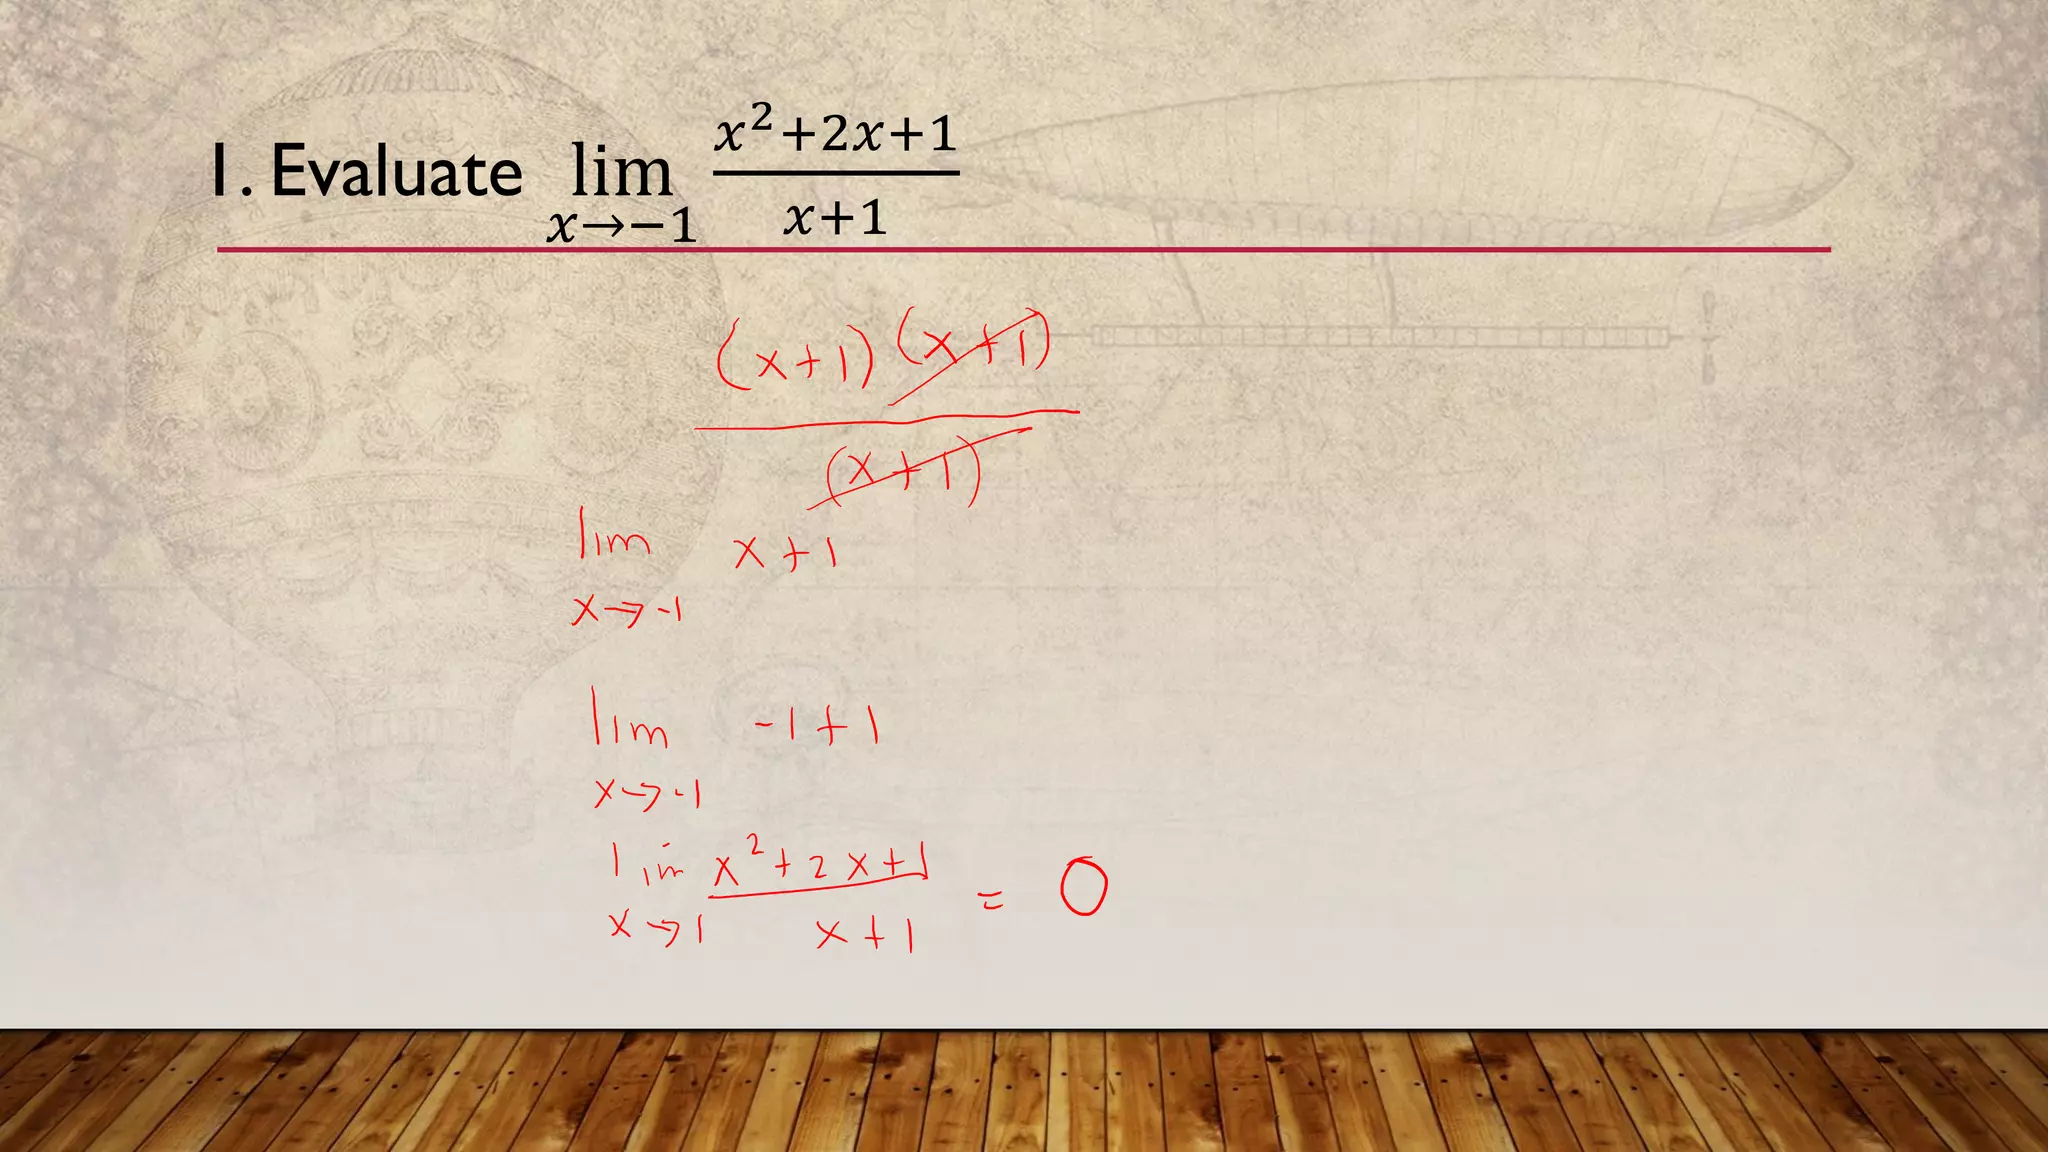 1. Evaluate lim x→−1 x²+2x+1 / x+1
(x+1)(x+1)
(x+1)
lim x+1
x→-1
lim -1+1
x→-1
lim x²+2x+1 = 0
x→1 x+1